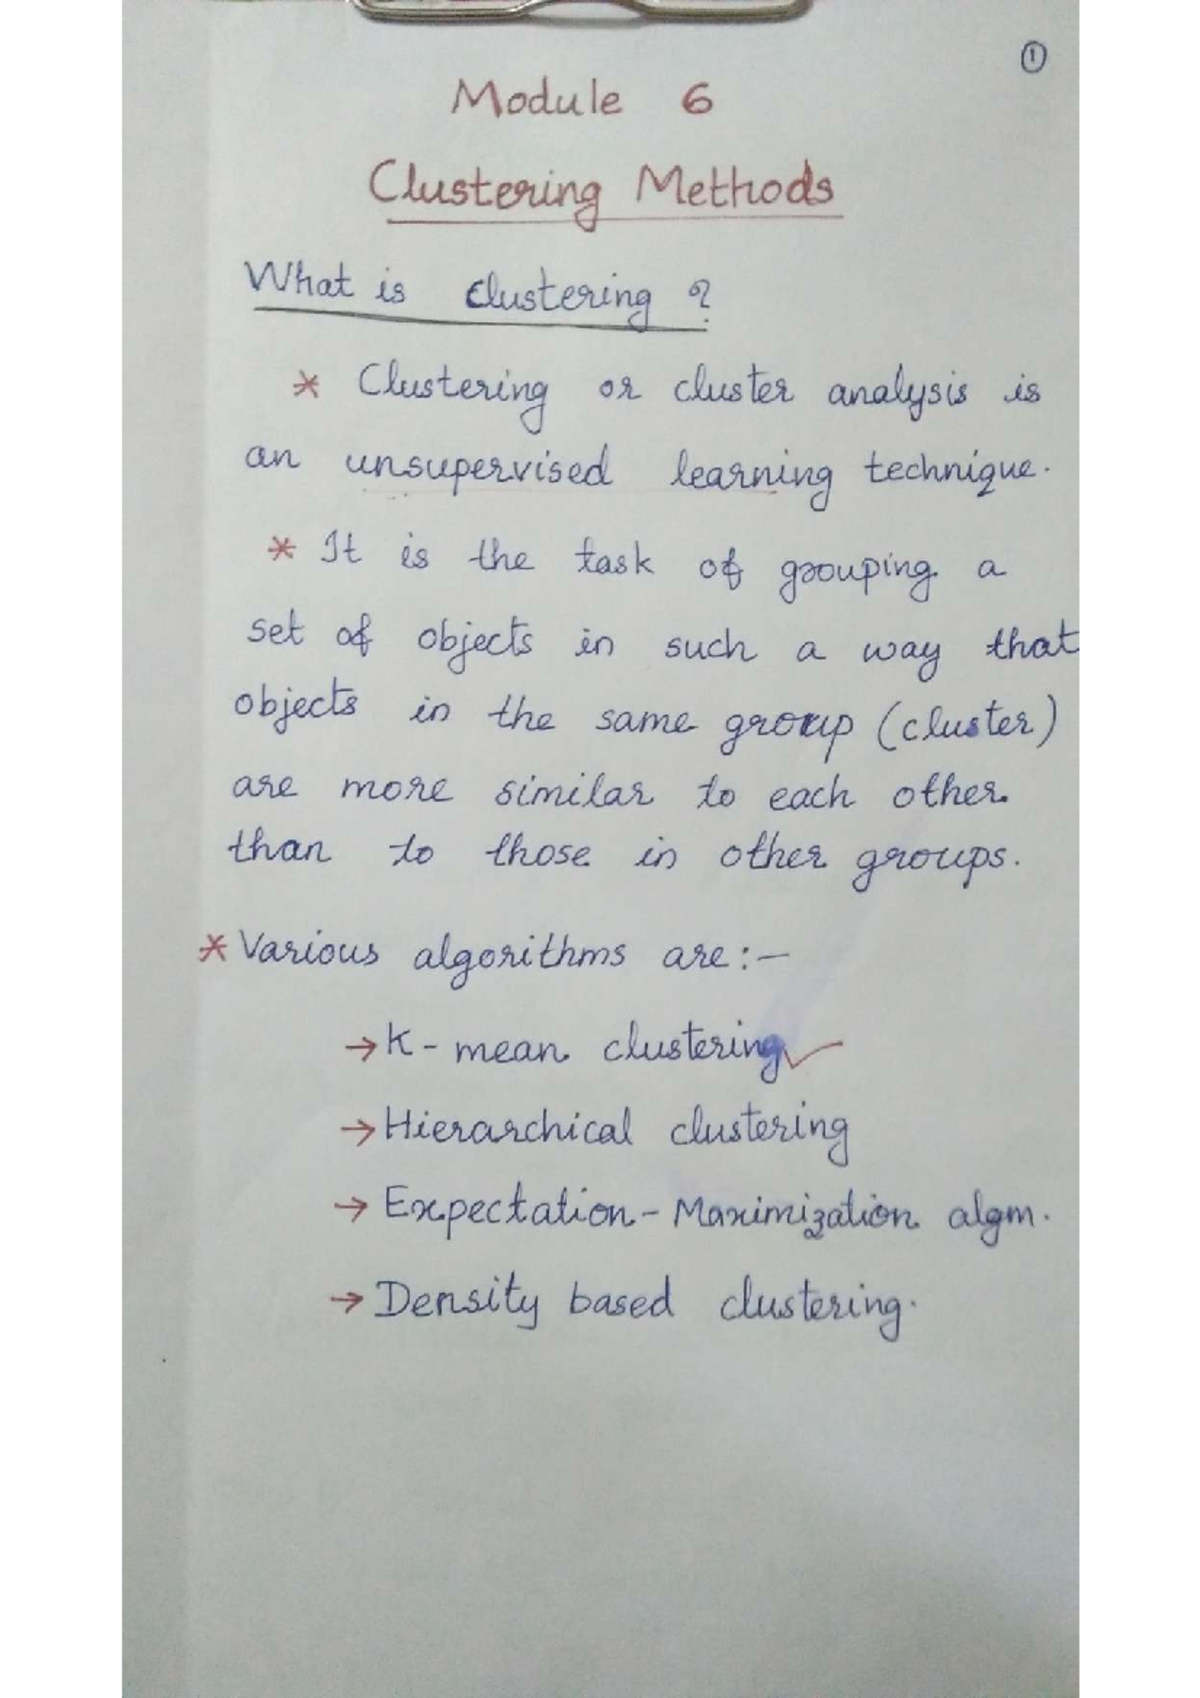 ①
Module 6
Clustering Methods
What is clustering ?
* Clustering or cluster analysis is
an unsupervised learning technique.
* It is the task of grouping a
set of objects in such a way that
objects in the same group (cluster)
are more similar to each other
than to those in other groups.
* Various algorithms are:-
→ K- mean clustering ✓
→ Hierarchical clustering
→ Expectation - Maximization algm.
→ Density based clustering.